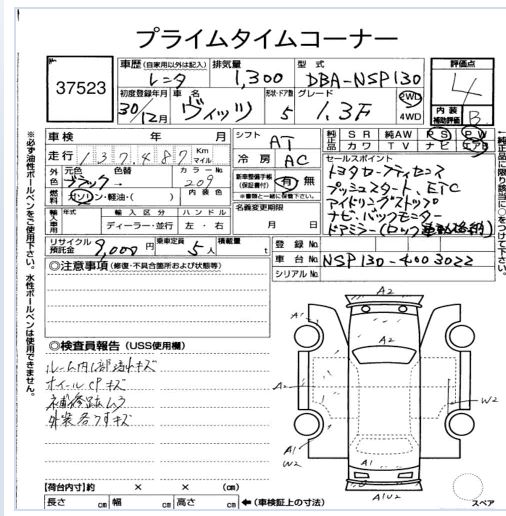 プライムタイムコーナー
37523
車歴 (自家用以外は記入) レンタ
排気量 1,300
型式 DBA-NSP130
評価点 4
初度登録年月 30/12月
車名 ヴィッツ
形状・ドア数 5
グレード 1.3F
2WD
4WD
内装補助評価 B
車検 年 月
シフト AT
純正品 SR 純AW PS PW
カワ TV ナビ エアB
走行 137,487 Km マイル
冷房 AC
セールスポイント
トヨタセーフティセンス
プッシュスタート、ETC
アイドリングストップ
ナビ、バックモニター
ドアミラー(ロック連動格納)
外色 元色 ブラック 色替 カラーNo. 209
燃料 ガソリン・軽油・( ) 内装色
新車整備手帳(保証書付) 有 無
※書類と一緒に保管下さい。
輸入車用 年式 輸入区分 ハンドル
ディーラー・並行 左・右
名義変更期限
月 日
リサイクル預託金 9,000円
乗車定員 5人
積載量 t
登録No.
車台No. NSP130-4003022
シリアルNo.
◎注意事項 (修復・不具合箇所および状態等)
◎検査員報告 (USS使用欄)
ルーム内1部汚れキズ
ホイールCPキズ
補修跡ムラ
外装各ウスキズ
A2
A1
A2
A1
W2
A1
W2
A1
A1U2
スペア
【荷台内寸】約 × × (cm)
長さ cm 幅 cm 高さ cm ←(車検証上の寸法)
※必ず油性ボールペンをご使用下さい。水性ボールペンは使用できません。
←純正品に限り該当に○をつけて下さい。